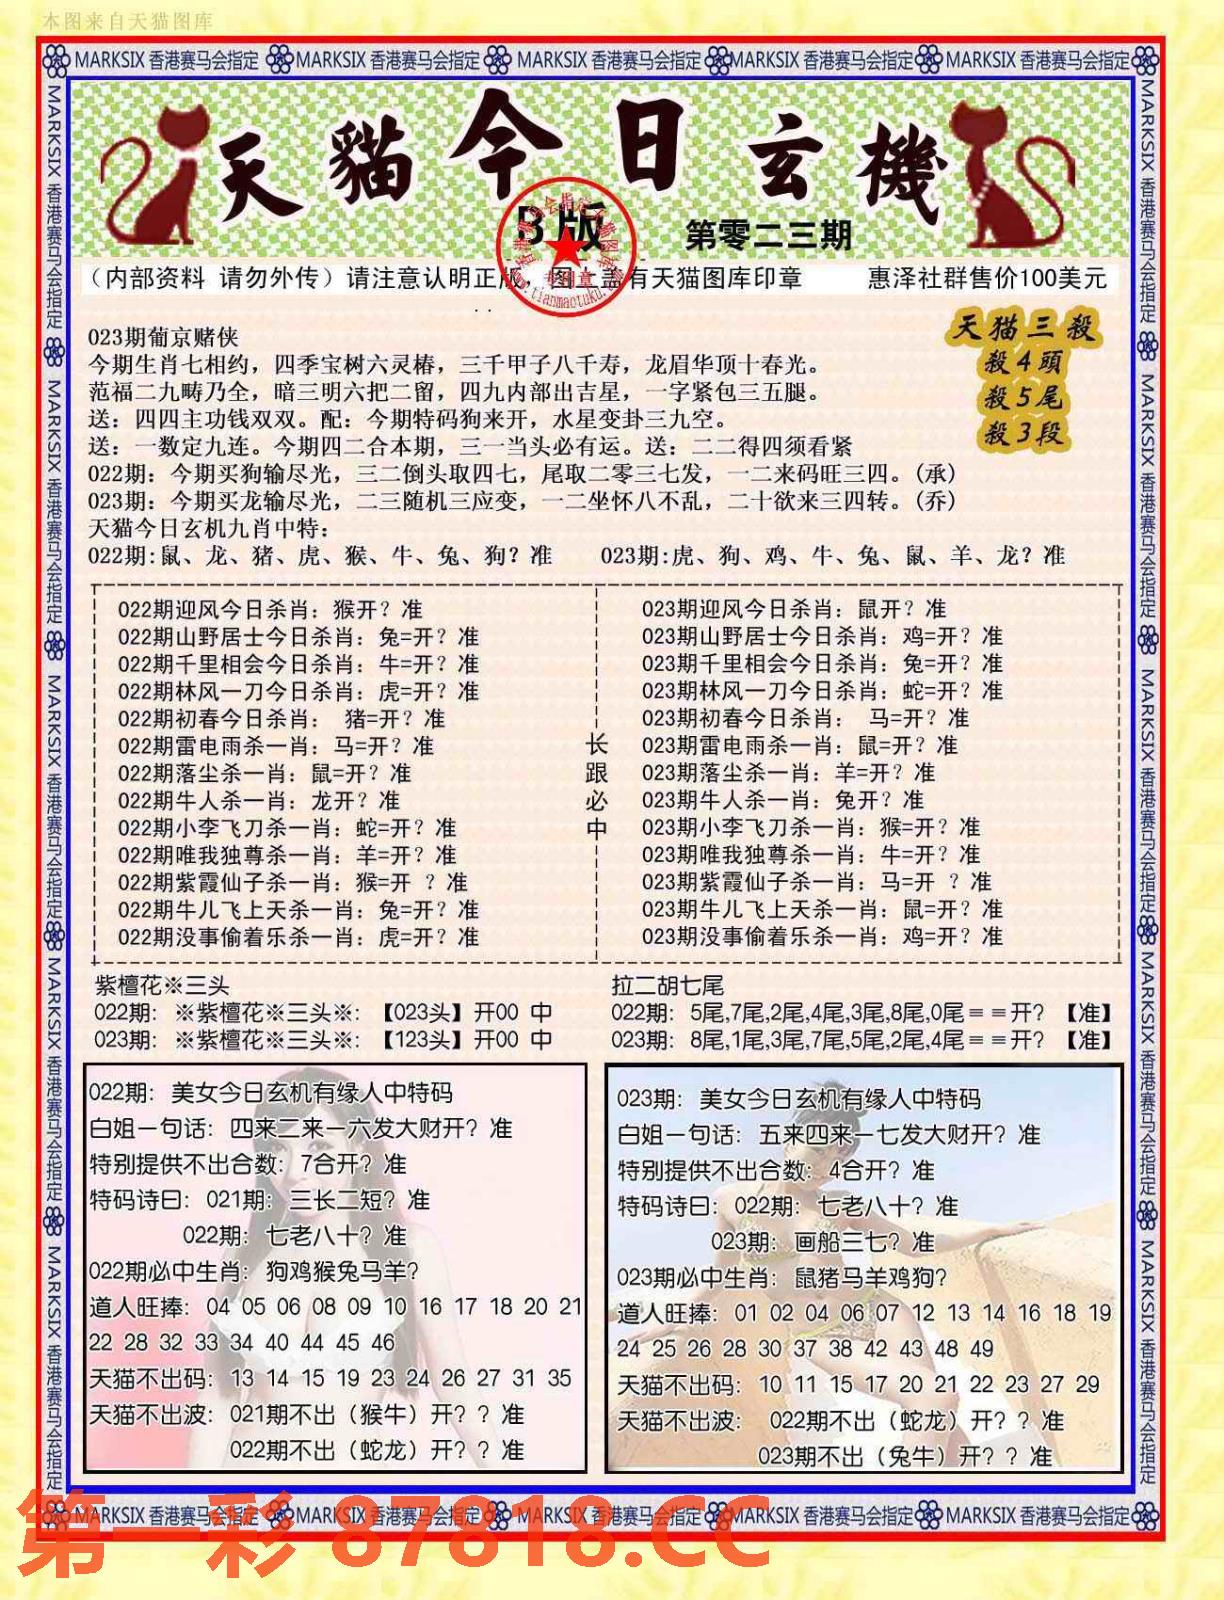 本图来自天猫图库
MARKSIX 香港赛马会指定 MARKSIX 香港赛马会指定 MARKSIX 香港赛马会指定 MARKSIX 香港赛马会指定 MARKSIX 香港赛马会指定
天貓今日玄機
B版
第零二三期
(内部资料 请勿外传)请注意认明正版,图上盖有天猫图库印章 惠泽社群售价100美元
天猫三殺
殺4頭
殺5尾
殺3段
023期葡京赌侠
今期生肖七相约,四季宝树六灵椿,三千甲子八千寿,龙眉华顶十春光。
范福二九畴乃全,暗三明六把二留,四九内部出吉星,一字紧包三五腿。
送:四四主功钱双双。配:今期特码狗来开,水星变卦三九空。
送:一数定九连。今期四二合本期,三一当头必有运。送:二二得四须看紧
022期:今期买狗输尽光,三二倒头取四七,尾取二零三七发,一二来码旺三四。(承)
023期:今期买龙输尽光,二三随机三应变,一二坐怀八不乱,二十欲来三四转。(乔)
天猫今日玄机九肖中特:
022期:鼠、龙、猪、虎、猴、牛、兔、狗?准 023期:虎、狗、鸡、牛、兔、鼠、羊、龙?准
022期迎风今日杀肖:猴开?准
022期山野居士今日杀肖:兔=开?准
022期千里相会今日杀肖:牛=开?准
022期林风一刀今日杀肖:虎=开?准
022期初春今日杀肖: 猪=开?准
022期雷电雨杀一肖:马=开?准
022期落尘杀一肖:鼠=开?准
022期牛人杀一肖:龙开?准
022期小李飞刀杀一肖:蛇=开?准
022期唯我独尊杀一肖:羊=开?准
022期紫霞仙子杀一肖:猴=开 ?准
022期牛儿飞上天杀一肖:兔=开?准
022期没事偷着乐杀一肖:虎=开?准
长
跟
必
中
023期迎风今日杀肖:鼠开?准
023期山野居士今日杀肖:鸡=开?准
023期千里相会今日杀肖:兔=开?准
023期林风一刀今日杀肖:蛇=开?准
023期初春今日杀肖: 马=开?准
023期雷电雨杀一肖:鼠=开?准
023期落尘杀一肖:羊=开?准
023期牛人杀一肖:兔开?准
023期小李飞刀杀一肖:猴=开?准
023期唯我独尊杀一肖:牛=开?准
023期紫霞仙子杀一肖:马=开 ?准
023期牛儿飞上天杀一肖:鼠=开?准
023期没事偷着乐杀一肖:鸡=开?准
紫檀花※三头
022期: ※紫檀花※三头※:【023头】开00 中
023期: ※紫檀花※三头※:【123头】开00 中
拉二胡七尾
022期: 5尾,7尾,2尾,4尾,3尾,8尾,0尾==开?【准】
023期: 8尾,1尾,3尾,7尾,5尾,2尾,4尾==开?【准】
022期: 美女今日玄机有缘人中特码
白姐一句话: 四来二来一六发大财开?准
特别提供不出合数: 7合开?准
特码诗曰: 021期: 三长二短?准
022期: 七老八十?准
022期必中生肖: 狗鸡猴兔马羊?
道人旺捧: 04 05 06 08 09 10 16 17 18 20 21
22 28 32 33 34 40 44 45 46
天猫不出码: 13 14 15 19 23 24 26 27 31 35
天猫不出波: 021期不出(猴牛)开??准
022期不出(蛇龙)开??准
023期: 美女今日玄机有缘人中特码
白姐一句话: 五来四来一七发大财开?准
特别提供不出合数: 4合开?准
特码诗曰: 022期: 七老八十?准
023期: 画船三七?准
023期必中生肖: 鼠猪马羊鸡狗?
道人旺捧: 01 02 04 06 07 12 13 14 16 18 19
24 25 26 28 30 37 38 42 43 48 49
天猫不出码: 10 11 15 17 20 21 22 23 27 29
天猫不出波: 022期不出(蛇龙)开??准
023期不出(兔牛)开??准
MARKSIX 香港赛马会指定 MARKSIX 香港赛马会指定 MARKSIX 香港赛马会指定 MARKSIX 香港赛马会指定 MARKSIX 香港赛马会指定
第一彩 87818.CC
MARKSIX 香港赛马会指定 MARKSIX 香港赛马会指定 MARKSIX 香港赛马会指定 MARKSIX 香港赛马会指定 MARKSIX 香港赛马会指定
MARKSIX 香港赛马会指定 MARKSIX 香港赛马会指定 MARKSIX 香港赛马会指定 MARKSIX 香港赛马会指定 MARKSIX 香港赛马会指定